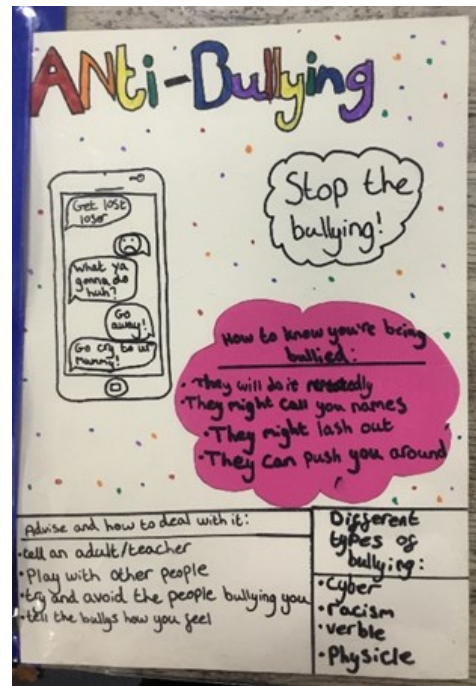 ANti-Bullying
Get lost
loser
What ya
gonna do
huh?
Go
away!
Go cry to ur
mummy!
Stop the
bullying!
How to know you're being
bullied:
• They will do it repeatedly
• They might call you names
• They might lash out
• They can push you around
Advise and how to deal with it:
• tell an adult/teacher
• Play with other people
• try and avoid the people bullying you
• tell the bullys how you feel
Different
types of
bullying:
• Cyber
• racism
• verble
• Physicle